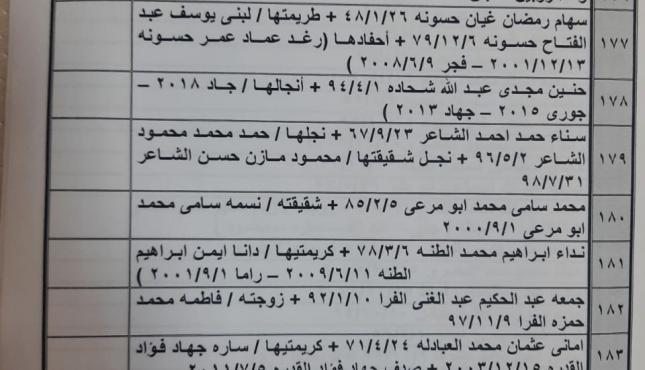 سهام رمضان غيان حسونه ٤٨/١/٢٦ + طريمتها / لبنى يوسف عبد
١٧٧
الفتاح حسونه ٧٩/١٢/٦ + أحفادها (رغد عماد عمر حسونه
٢٠٠١/١٢/١٣ – فجر ٢٠٠٨/٦/٩ )
١٧٨
حنين مجدى عبد الله شحاده ٩٤/٤/١ + أنجالها / جاد ٢٠١٨ –
جورى ٢٠١٥ – جهاد ٢٠١٣ )
سناء حمد احمد الشاعر ٦٧/٩/٢٣ + نجلها / حمد محمد محمود
١٧٩
الشاعر ٩٦/٥/٢ + نجل شقيقتها / محمود مازن حسن الشاعر
٩٨/٧/٣١
١٨٠
محمد سامى محمد ابو مرعى ٨٥/٢/٥ + شقيقته / نسمه سامى محمد
ابو مرعى ٢٠٠٠/٩/١
١٨١
نداء ابراهيم محمد الطنه ٧٨/٣/٦ + كريمتيها / دانا ايمن ابراهيم
الطنه ٢٠٠٩/٦/١١ – راما ٢٠٠١/٩/١ )
١٨٢
جمعه عبد الحكيم عبد الغنى الفرا ٩٢/١/١٠ + زوجته / فاطمه محمد
حمزه الفرا ٩٧/١١/٩
١٨٣
امانى عثمان محمد العبادله ٧١/٤/٢٤ + كريمتيها / ساره جهاد فؤاد
القدره ٢٠٠٣/١٢/١٥ + جهاد فؤاد القدره ٢٠١١/٧/٥